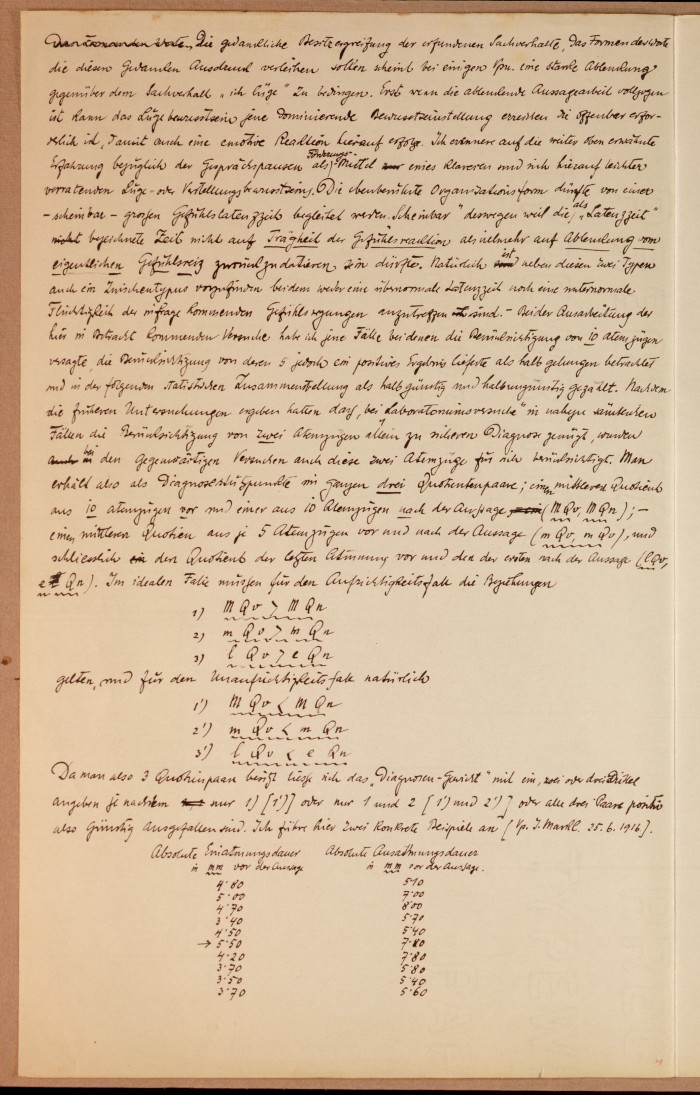 Die gedankliche Besitzergreifung der erfundenen Sachverhalte, das Formen der Worte
die diesen Gedanken Ausdruck verleihen sollen scheint bei einigen Vpn. eine starke Ablenkung
gegenüber dem Sachverhalt „ich lüge" zu bedingen. Erst wenn die ablenkende Aussagearbeit vollzogen
ist kann das Lügebewusstsein jene dominierende Bewusstseinstellung erreichen die offenbar erfor-
derlich ist, damit auch eine emotive Reaktion hierauf erfolge. Ich erinnere auf die weiter oben erwähnte
Erfahrung bezüglich der Gesprächspausen als Förderungs-Mittel eines klareren und sich hierauf leichter
verratenden Lüge- oder Verstellungsbewusstseins. Die ebenberührte Organisationsform dürfte von einer
- scheinbar - grossen Gefühlslatenzzeit begleitet werden. „Scheinbar" deswegen weil die als „Latenzzeit"
bezeichnete Zeit nicht auf Trägheit der Gefühlsreaktion als vielmehr auf Ablenkung vom
eigentlichen Gefühlsreiz zurückzudatieren sein dürfte. Natürlich ist neben diesen zwei Typen
auch ein Zwischentypus vorzufinden bei dem weder eine übernormale Latenzzeit noch eine unternormale
Flüchtigkeit der infrage kommenden Gefühlsregungen anzutreffen sind. - Bei der Ausarbeitung der
hier in Betracht kommenden Versuche habe ich jene Fälle bei denen die Berücksichtigung von 10 Atemzügen
versagte, die Berücksichtigung von deren 5 jedoch ein positives Ergebnis lieferte als halb gelungen betrachtet
und in der folgenden statistischen Zusammenstellung als halbgünstig und halbungünstig gezählt. Nachdem
die früheren Untersuchungen ergeben hatten dass, bei „Laboratoriumsversuche" in nahezu sämtlichen
Fällen die Berücksichtigung von zwei Atemzügen allein zu sicheren Diagnose genügt, wurden
bei den gegenwärtigen Versuchen auch diese zwei Atemzüge für sich berücksichtigt. Man
erhält also als Diagnosestützpunkte im ganzen drei Quotientenpaare; einen mittleren Quotient
aus 10 Atemzügen vor und einer aus 10 Atemzügen nach der Aussage (M Qv, M Qn); -
einen mittleren Quotien aus je 5 Atemzügen vor und nach der Aussage (m Qv, m Qv), und
schliesslich den Quotient der letzten Atmung vor und den der ersten nach der Aussage (l Qv,
e Qn). Im idealen Falle müssen für den Aufrichtigkeitsfalle die Beziehungen
1) M Qv > M Qn
2) m Qv > m Qn
3) l Qv > e Qn
gelten, und für den Unaufrichtigkeitsfall natürlich
1') M Qv < M Qn
2') m Qv < m Qn
3') l Qv < e Qn
Da man also 3 Quotienpaare besitzt liesse sich das „Diagnosen-Gewicht" mit ein, zwei oder drei Drittel
angeben je nachdem nur 1) [1')] oder nur 1 und 2 [1') und 2')] oder alle drei Paare positiv
also günstig ausgefallen sind. Ich führe hier zwei konkrete Beispiele an [Vp. J. Markl. 25.6.1916].
Absolute Einatmungsdauer Absolute Ausatmungsdauer
in mm vor der Aussage in mm vor der Aussage.
4·80 5·10
5·00 7·00
4·70 8·00
3·40 5·70
4·50 5·40
→ 5·50 7·10
4·20 7·80
3·70 5·80
3·50 5·40
3·70 5·60